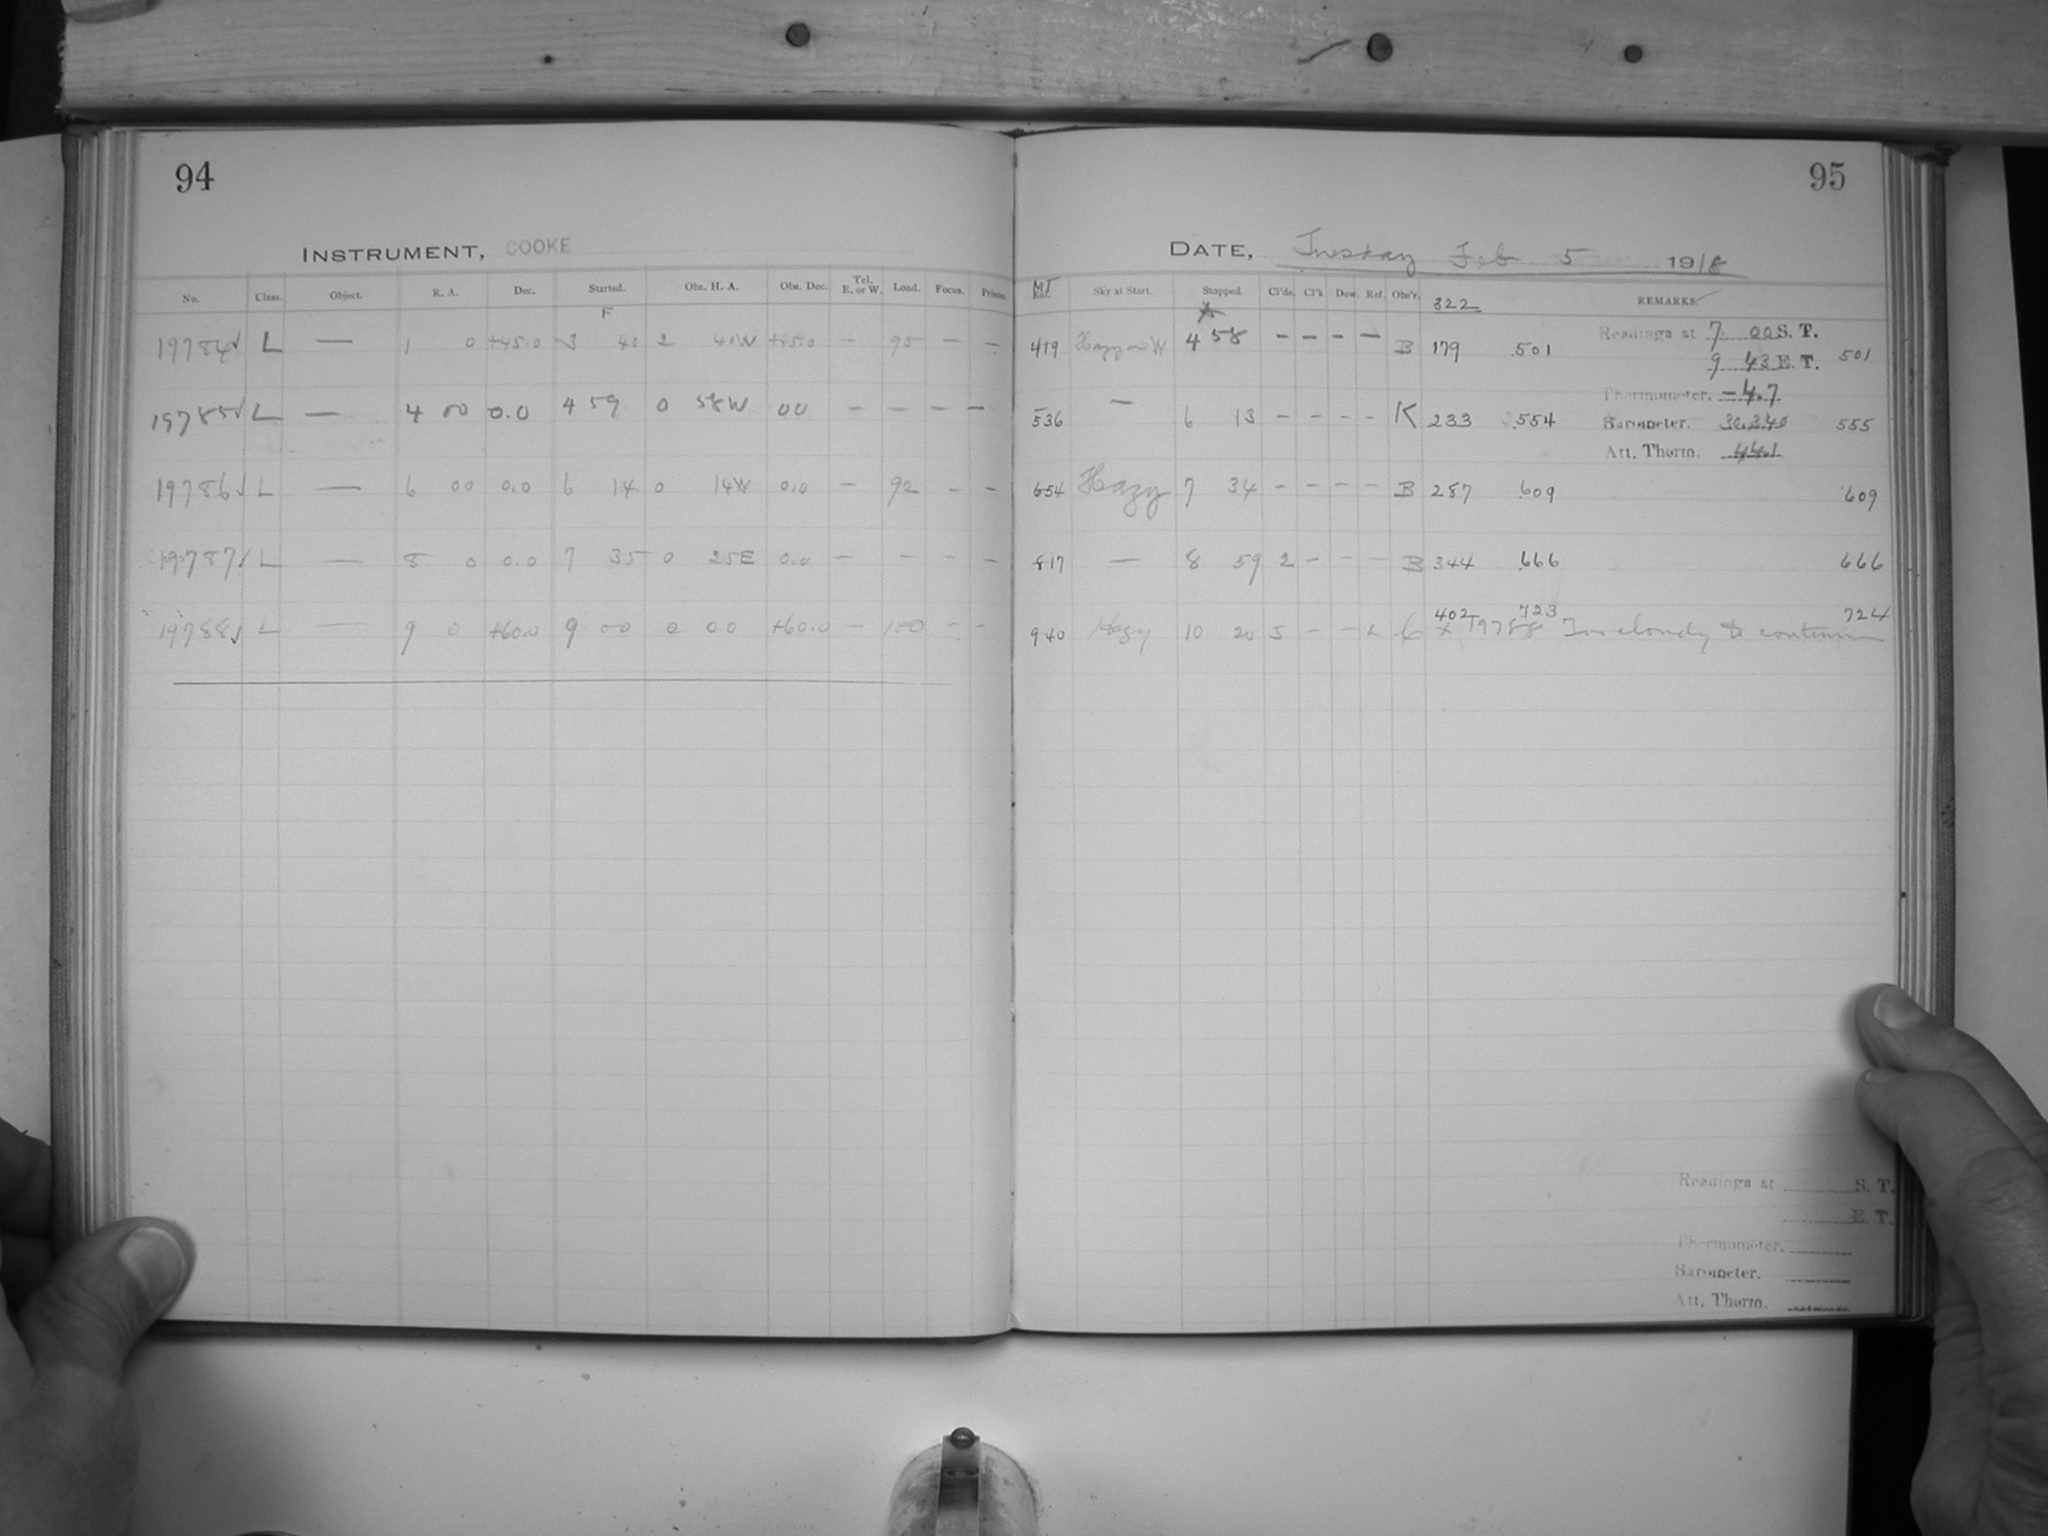 94
INSTRUMENT, COOKE
No. Class. Object. R. A. Dec. Started. Obs. H. A. Obs. Dec. Tel. E. or W. Load. Focus. Prisms.
F
19784√ L — 1 0 +45.0 3 40 2 40W +45.0 — 95 — —
19785√ L — 4 00 0.0 4 59 0 58W 00 — — — —
19786√ L — 6 00 0.0 6 14 0 14W 0.0 — 92 — —
19787√ L — 8 0 0.0 7 35 0 25E 0.0 — — — —
19788√ L — 9 0 +60.0 9 00 0 00 +60.0 — 100 — —
95
DATE, Tuesday Feb 5 1918
Sky at Start. Stopped. Cl'ds. Cl'k Dew. Ref. Obs'r. 322 REMARKS.
419 Hazy in W 4 58 — — — — B 179 .501 Readings at 7 00 S. T.
9 43 E. T. 501
Thermometer. -4.7
536 — 6 13 — — — — K 233 .554 Barometer. 30.240 555
Att. Therm. 44.1
654 Hazy 7 34 — — — — B 287 .609 609
817 — 8 59 2 — — — B 344 .666 666
402 723 724
940 Hazy 10 20 5 — — x C x 19788 Too cloudy to continue
Readings at S. T.
E. T.
Thermometer.
Barometer.
Att. Therm.